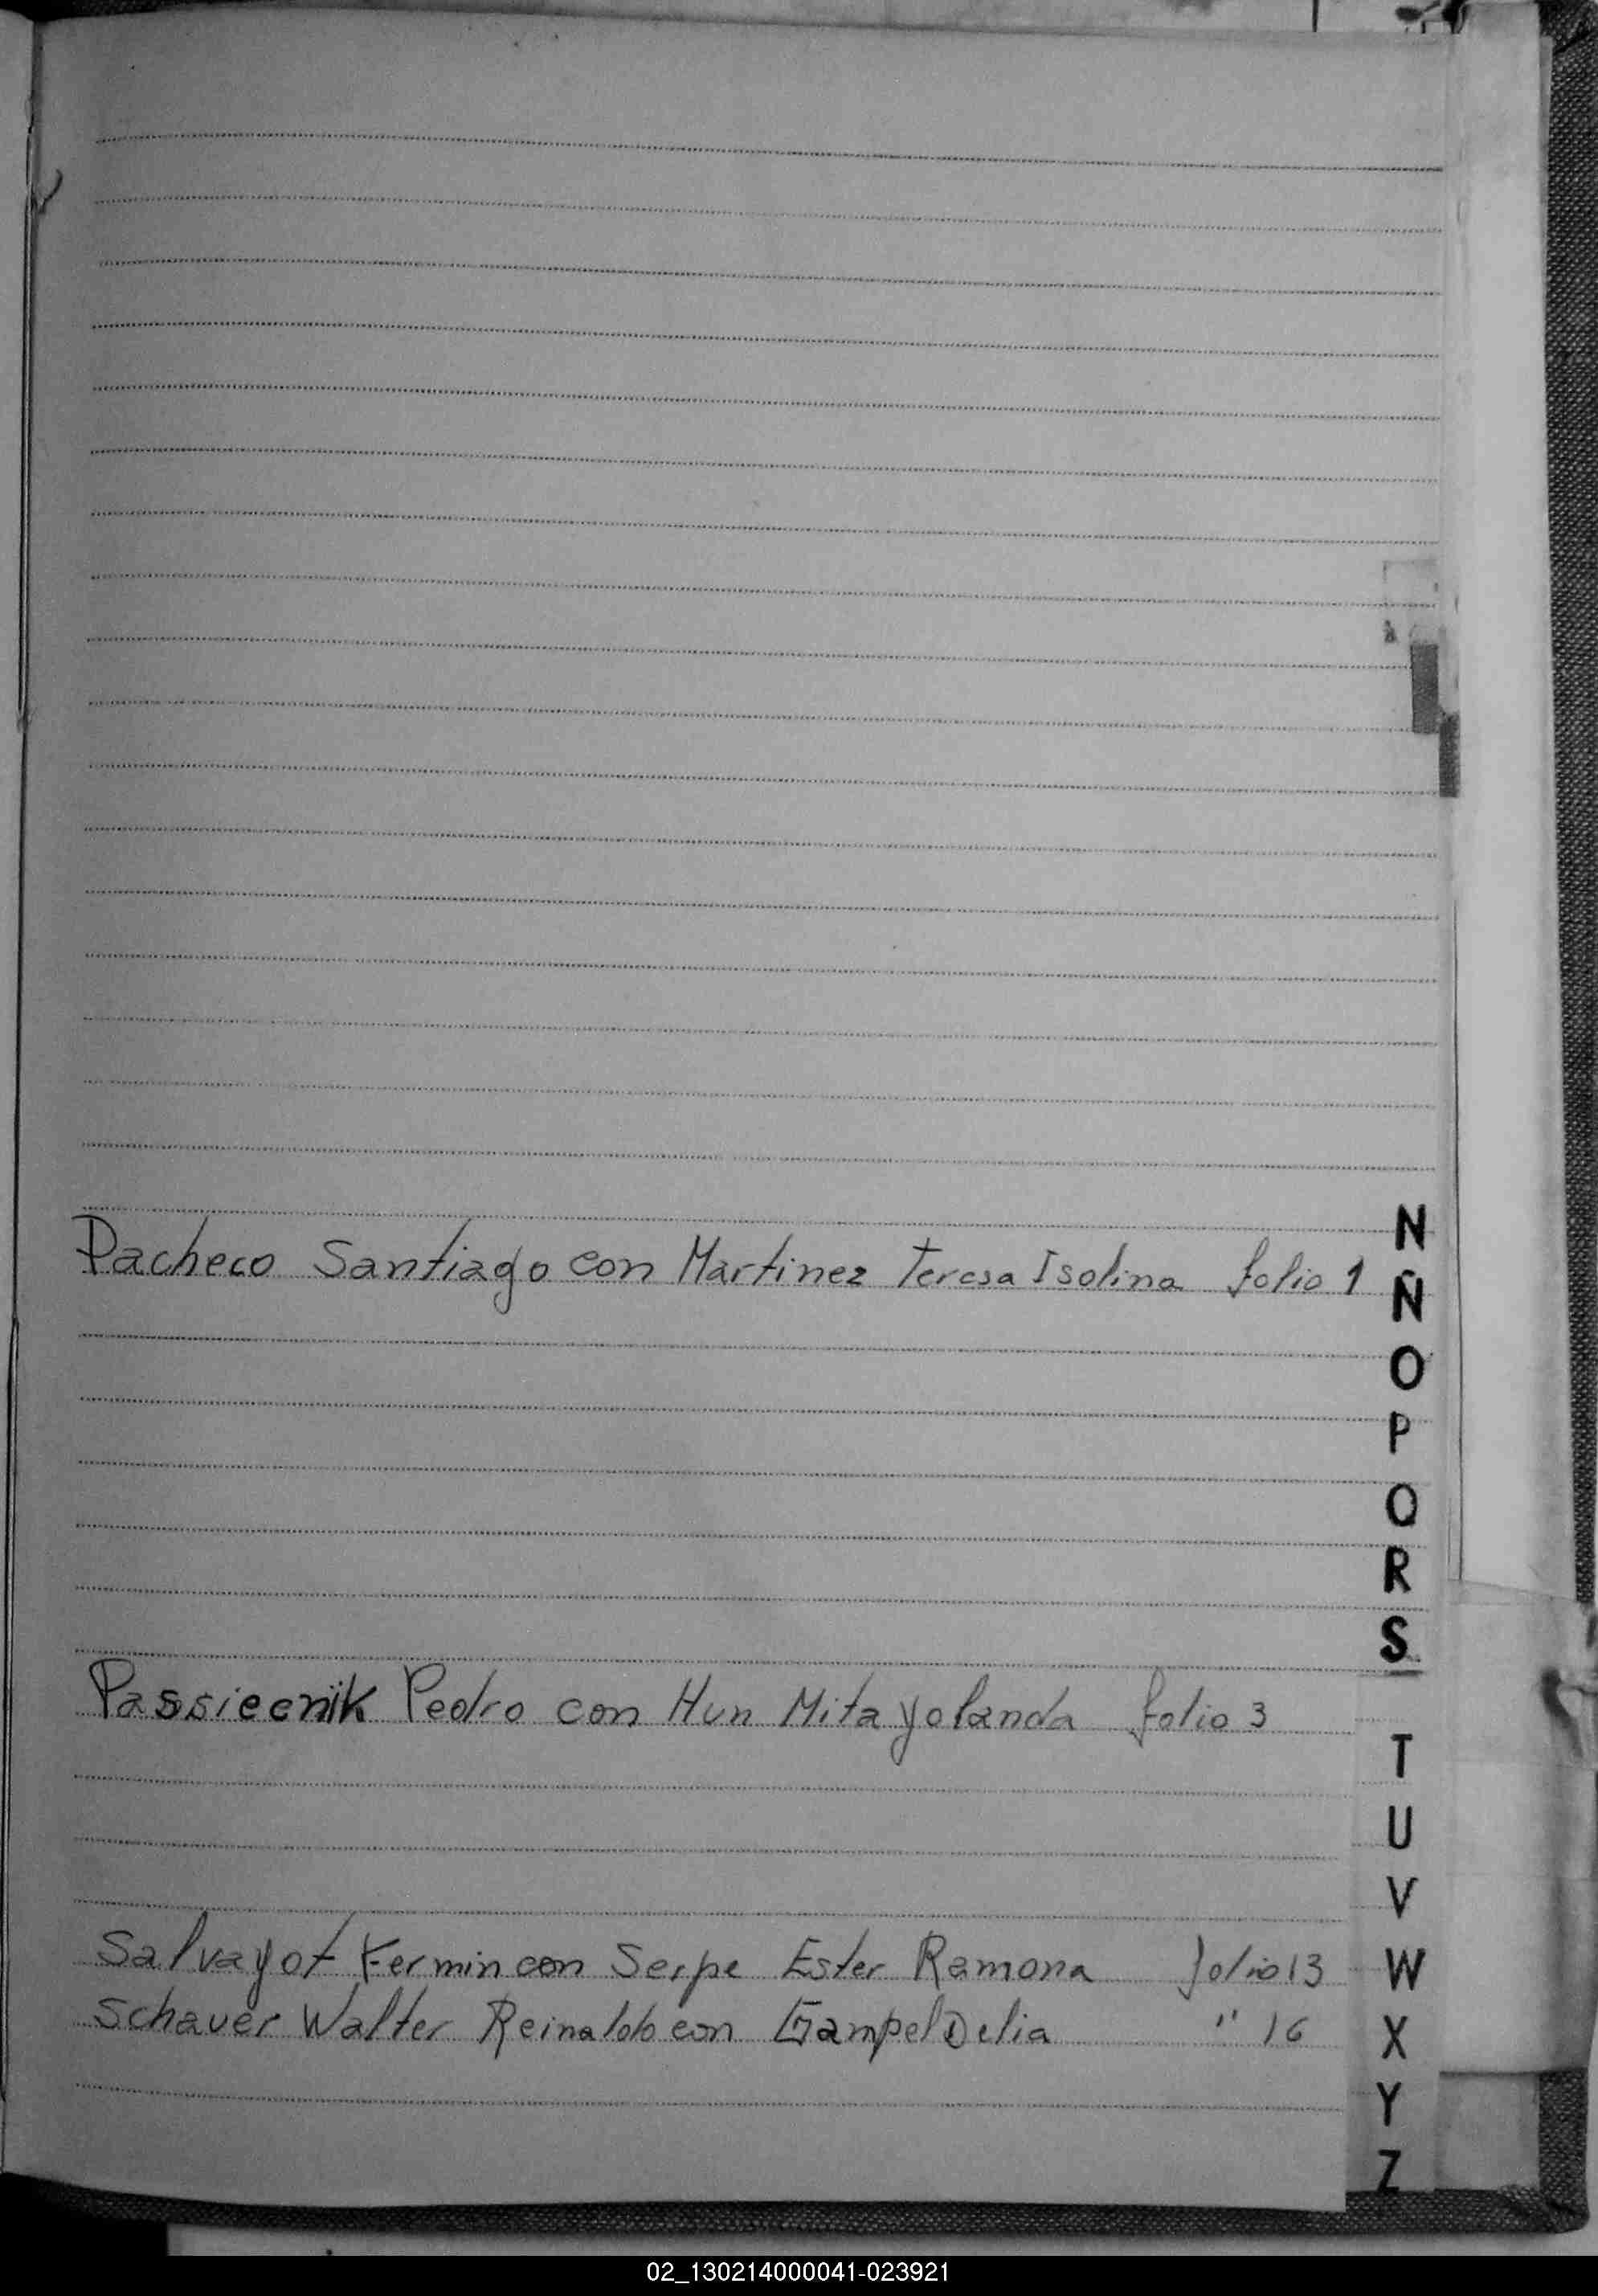 N
Pacheco Santiago con Martinez Teresa Isolina folio 1
Ñ
O
P
Q
R
S
Passiecnik Pedro con Hun Mita Yolanda folio 3
T
U
V
Salvayot Fermin con Serpe Ester Ramona folio 13
W
Schauer Walter Reinaldo con Gampel Delia " 16
X
Y
Z
02_130214000041-023921